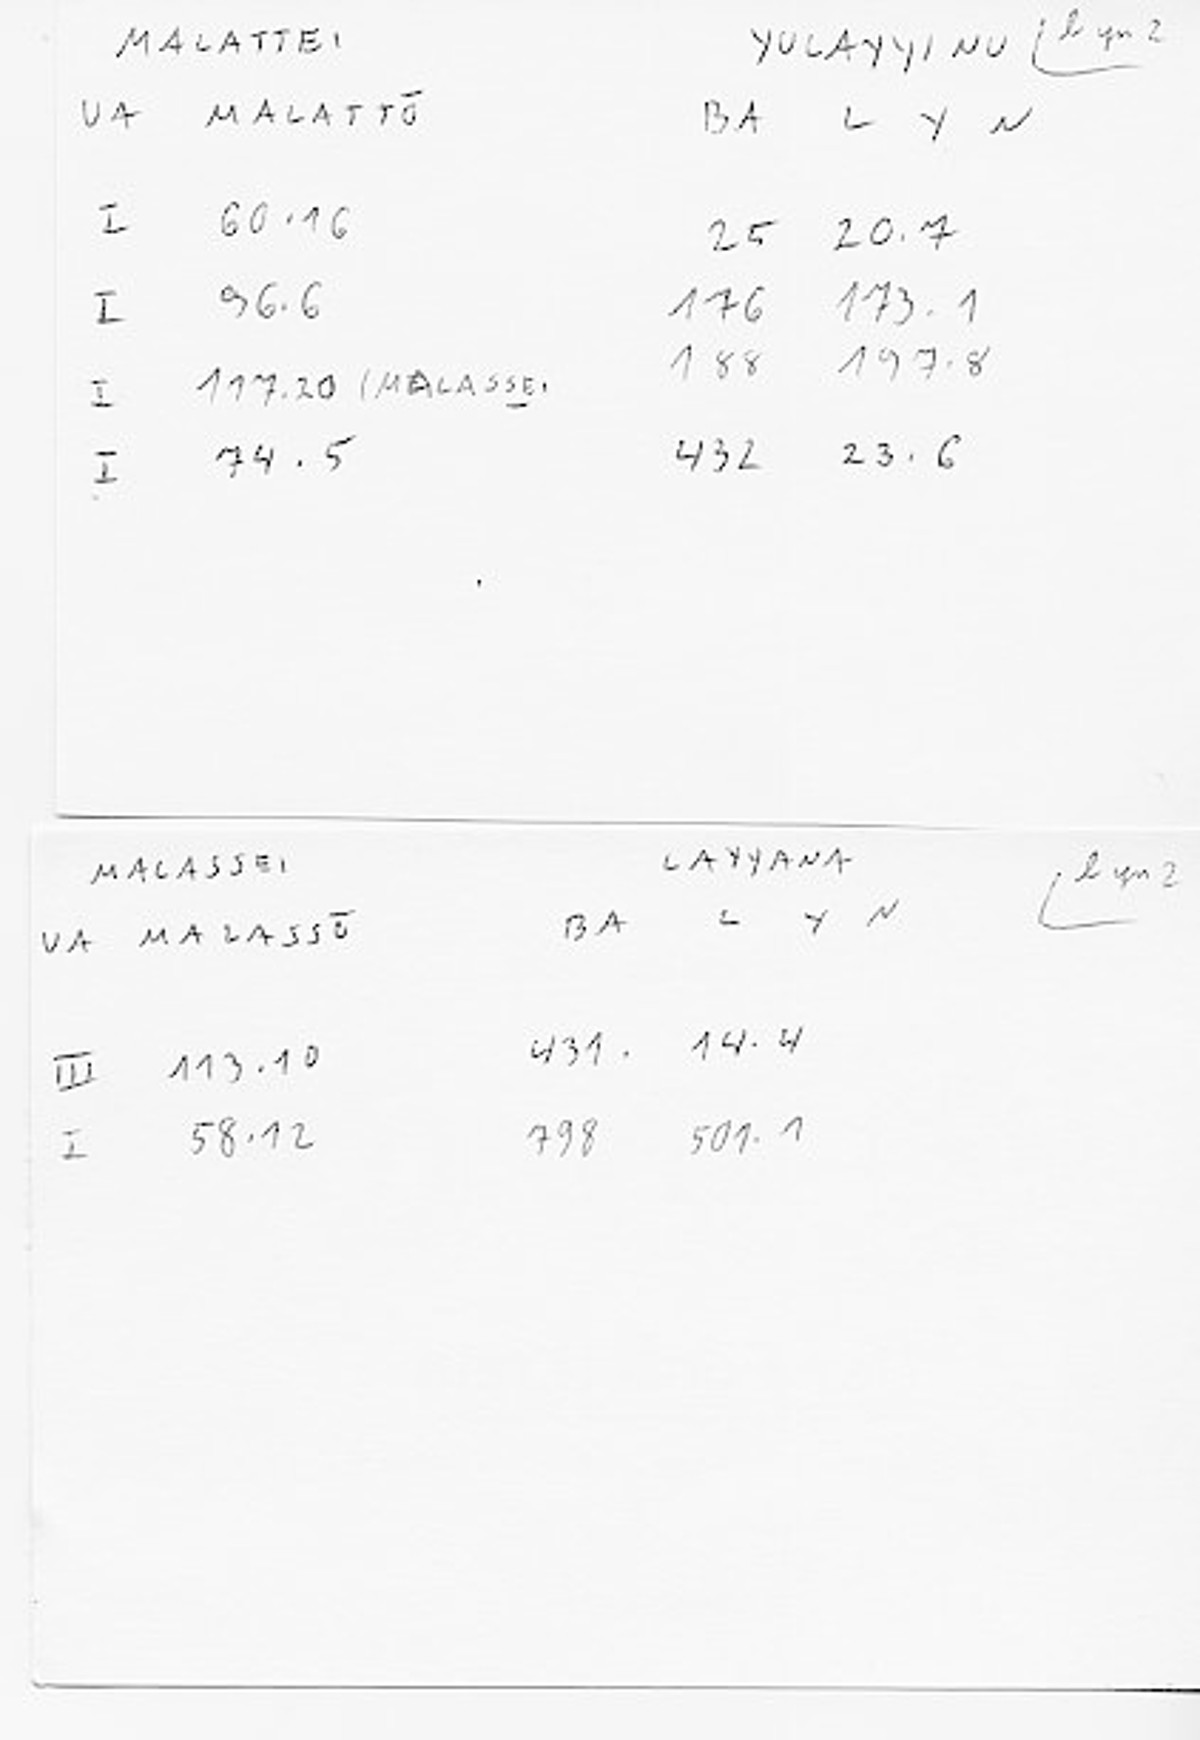 MALATTEI YULAYYINU lyn2
UA MALATTŌ BA L Y N
I 60.16 25 20.7
I 96.6 176 173.1
I 117.20 (MALASSEI 188 197.8
I 74.5 432 23.6
MALASSEI LAYYANA lyn2
UA MALASSŌ BA L Y N
III 113.10 431. 14.4
I 58.12 798 501.1